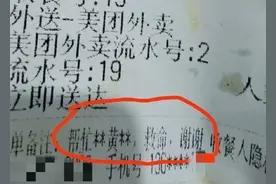 外送-美团外卖
美团外卖流水号:2
流水号:19
立即送达
单备注: 帮忙**黄**, 救命, 谢谢 收餐人隐
手机号 136****